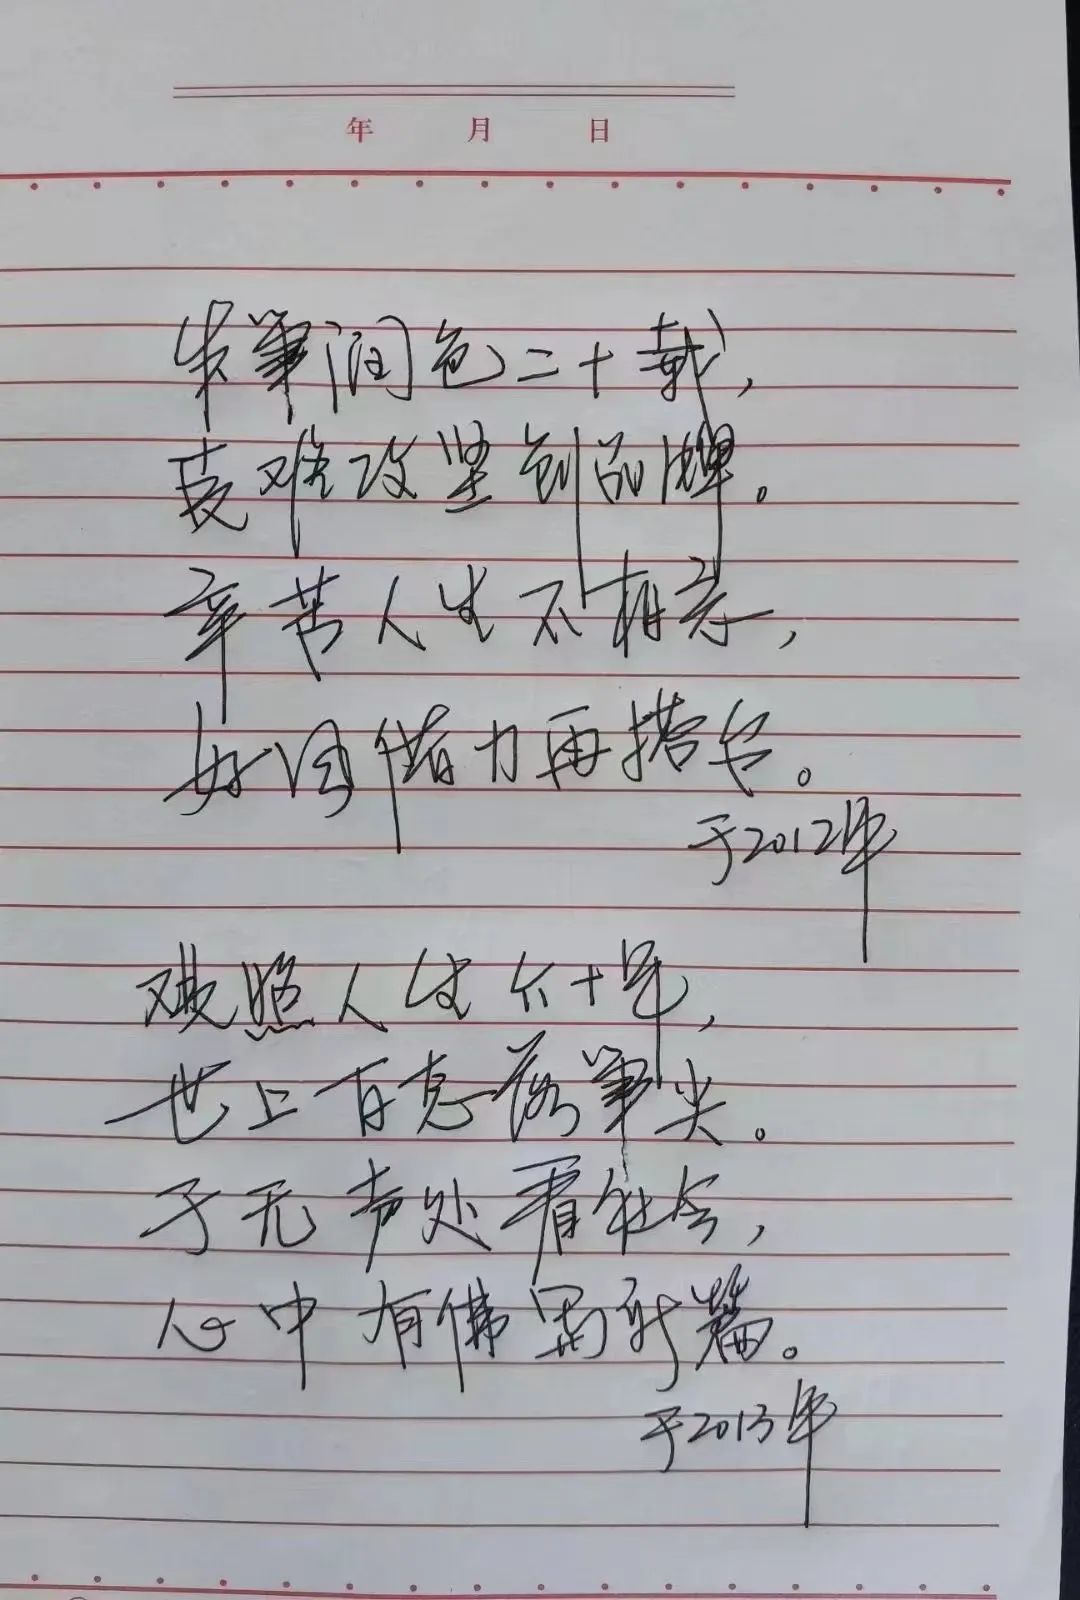 年 月 日
朱笔润色二十载,
艰难攻坚创品牌。
辛苦人生不相亲,
好风借力再搭台。
于2012年
观照人生六十年,
世上百态落笔尖。
于无声处看社会,
心中有佛写新篇。
于2013年